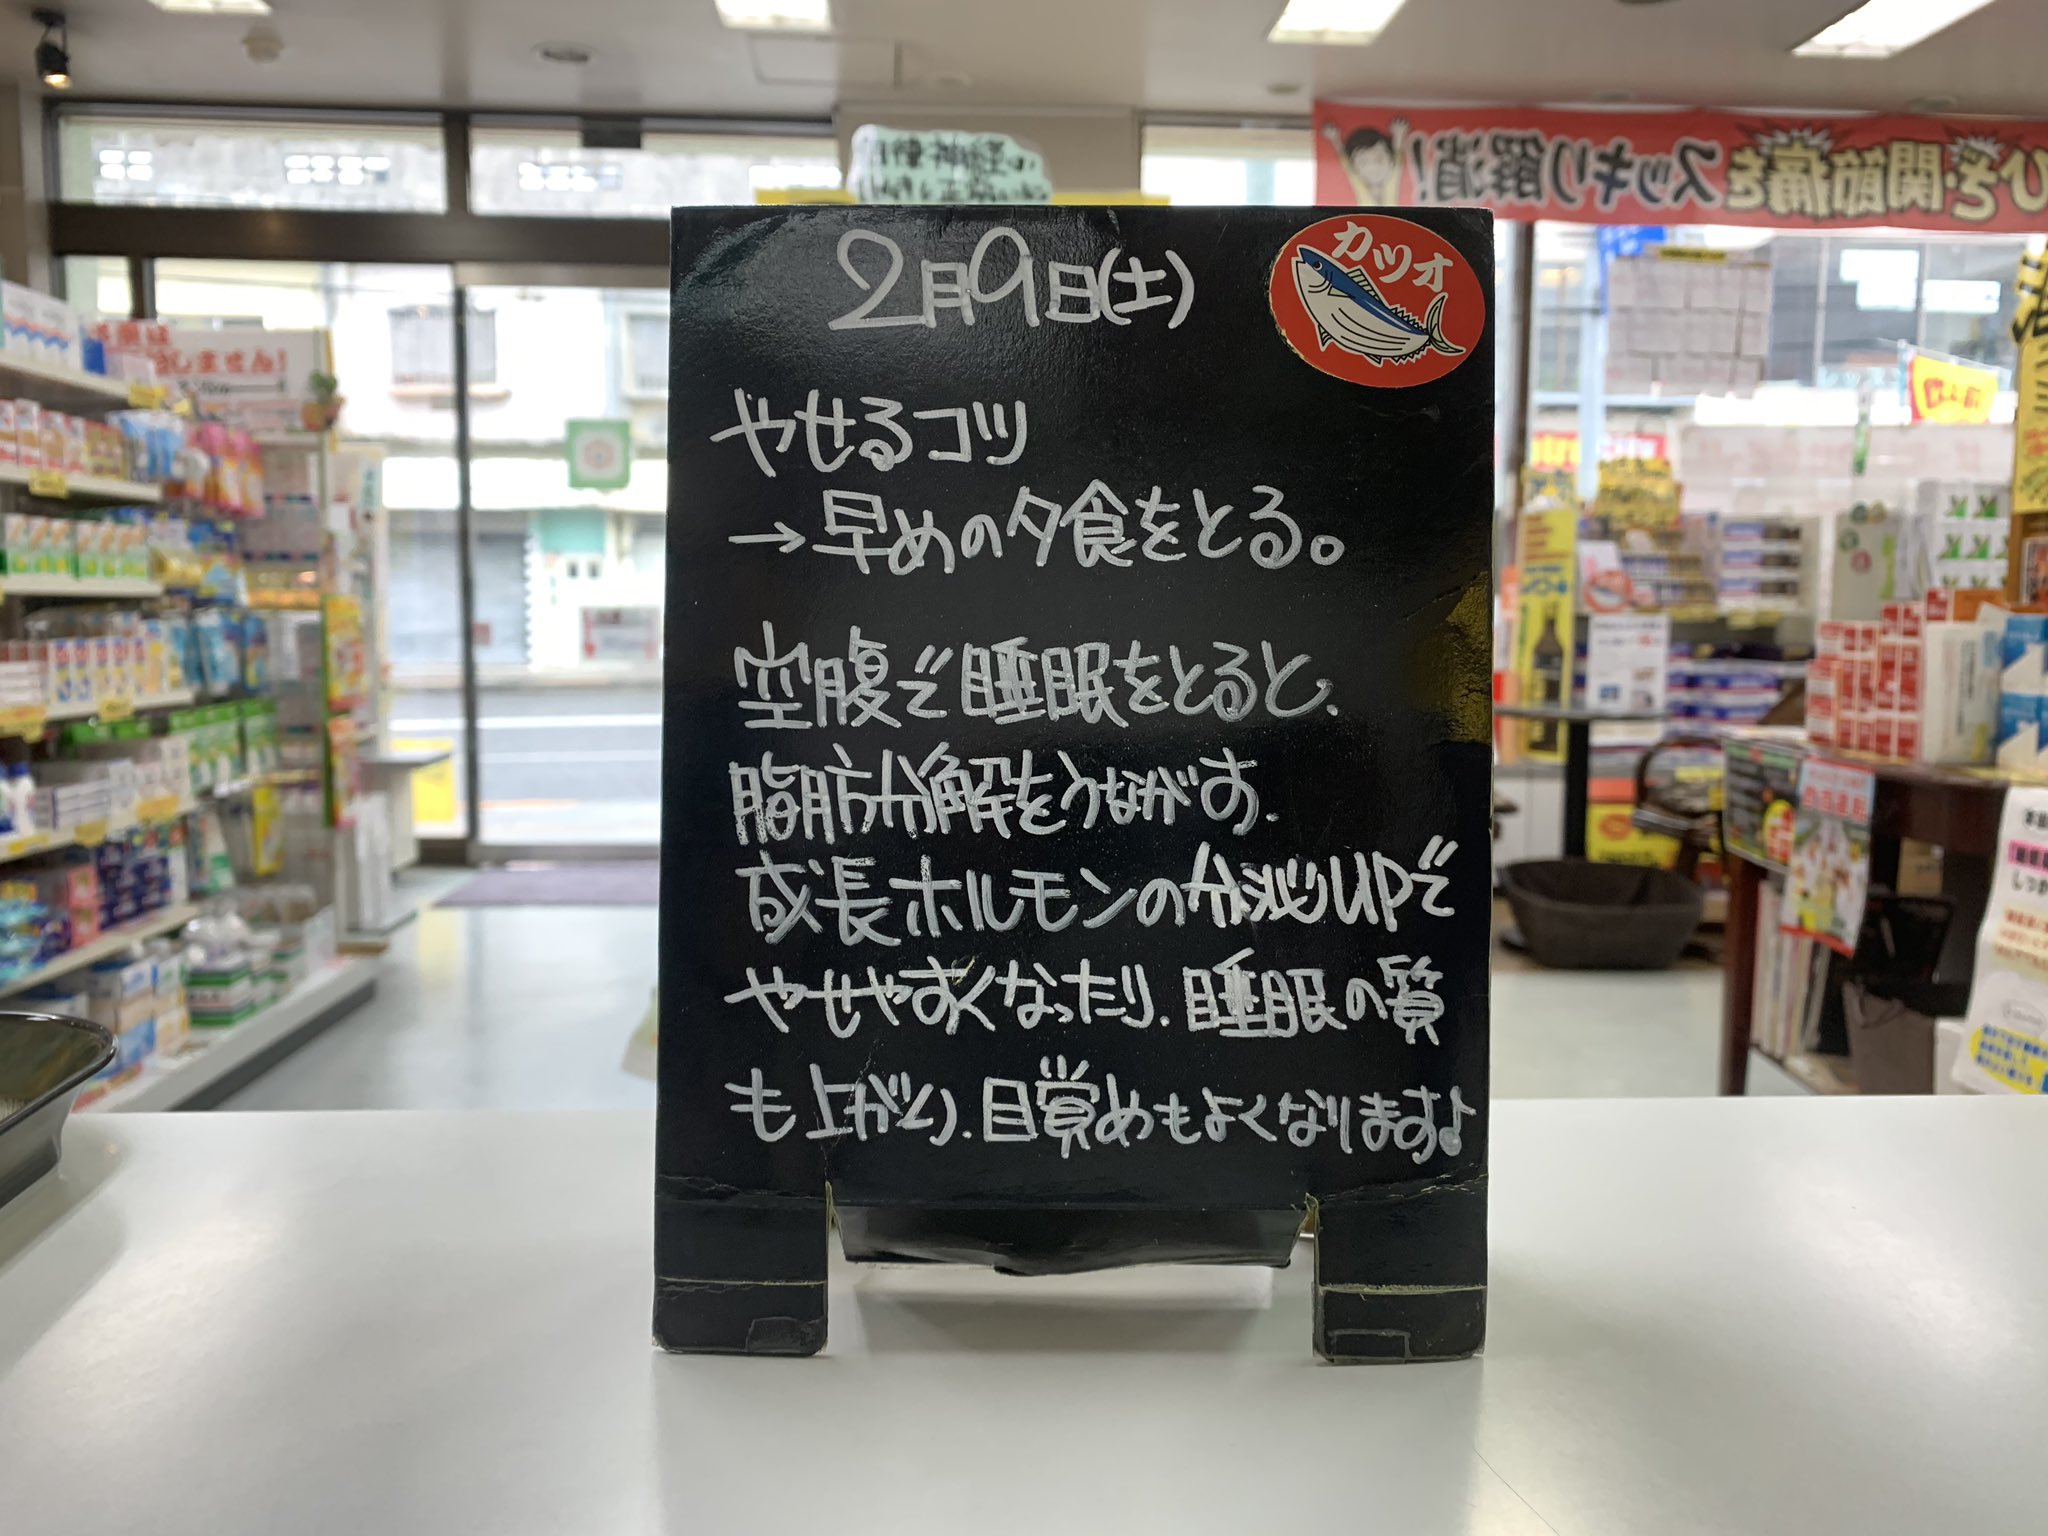 2月9日(土)
カツオ
やせるコツ
→早めの夕食をとる。
空腹で睡眠をとると、
脂肪分解をうながす.
成長ホルモンの分泌UPで
やせやすくなったり、睡眠の質
も上がり、目覚めもよくなります♪
ひざ・関節痛をスッキリ解消!
しません!